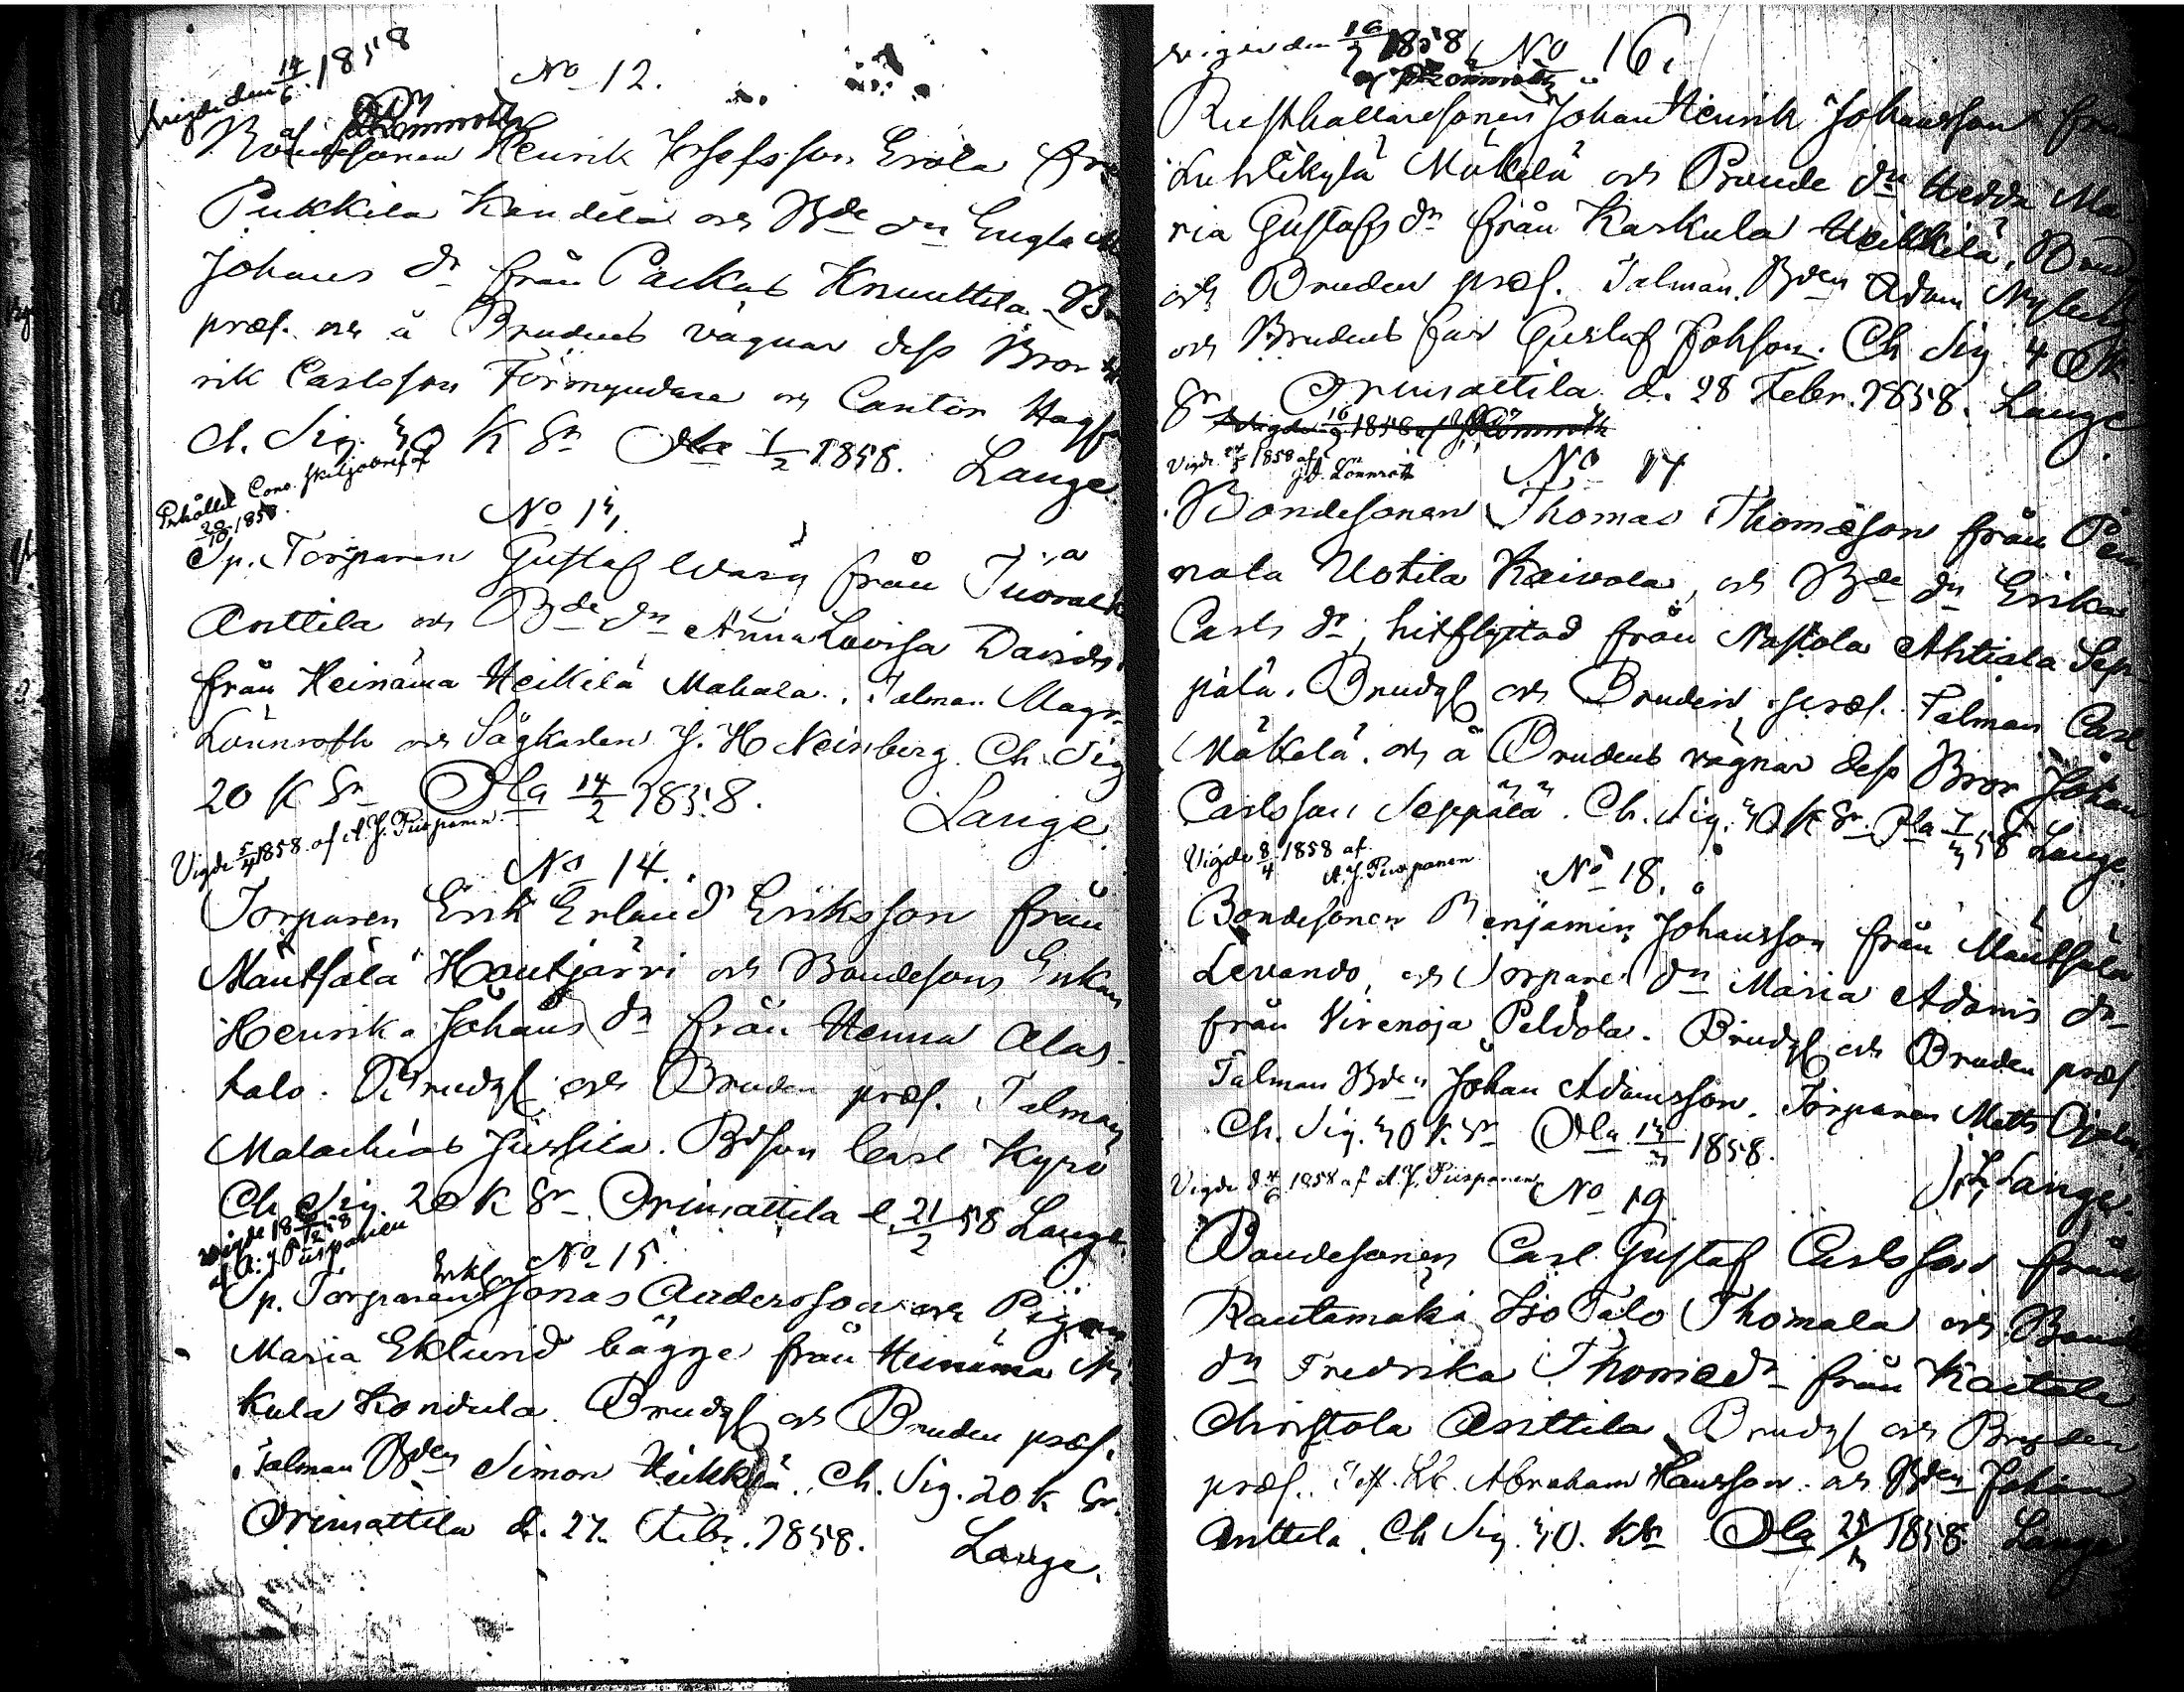 vigde den 14/6 1858
af Lönnroth
No 12.
Bondesonen Henrik Josefsson Erola
Pukkila Kandela och Bde dn Engla
Johans dr från Packas Knuuttila
præs. och å Brudens vägnar dess Bror
rik Carlsson Förmyndare och Cantor
Ch. Sig. 30 K Sr Ola 1/2 1858. Lange.
Erhållit Cons. skiljobref af
20/10 1858.
No 13.
Sp. Torparen Gustaf Warg från
Anttila och Bde dn Anna Lovisa Davids
från Heinäma Heikilä Mahala. Talman Magr.
Lönnroth och Sågkarlen J. H. Heinberg. Ch. Sig
20 K Sr Ola 14/2 1858. Lange.
Vigde 5/4 1858 af A. J. Piispanen.
No 14.
Torparen Erik Erland Eriksson från
Mäntsälä Hautjärvi och Bondesons Enkan
Henrika Johans dr från Henna Alas-
talo. Brudg och Bruden præs. Talman
Malachias Jussila. Bdson Carl Kyrö
Ch Sig. 20 K Sr Orimattila d. 21/2 58 Lange.
vigde 18 58
af A. J. Piispanen
No 15.
Sp. Torparen Enkl Jonas Andersson och Pigan
Maria Eklund bägge från Heinäma
kula Kondula. Brudg och Bruden præs.
Talman Bden Simon Heikkilä. Ch. Sig. 20 K Sr.
Orimattila d. 27 Febr. 1858. Lange.
vigde den 16/3 1858
af Lönnroth
No 16.
Rusthållaresonen Johan Henrik Johansson från
Luhtikylä Mäkelä och Bonde dn Hedda Ma-
ria Gustafs dr från Karkula Heikkilä. Brudg
och Bruden præs. Talman Bden Adam
och Brudens far Gustaf Johsson. Ch Sig 4
Sr Orimattila d. 28 Febr. 1858. Lange
Vigde 16/3 1858 af Lönnroth
Vigde 24/5 1858 af
J. A. Lönnroth
No 17
Bondesonen Thomas Thomæson från Pen
nala Uotila Kaivola, och Bde dn Erika
Carls dr, hitflyttad från Nastola Ahtiala Sep
pälä. Brudg och Bruden præs. Talman Carl
Mäkelä. och å Brudens vägnar dess Bror Johan
Carlsson Seppälä. Ch. Sig. 30 K Sr. Ola 7/3 58 Lange.
Vigde 8/4 1858 af
A. J. Piispanen
No 18.
Bondesonen Benjamin Johansson från Mäntsälä
Levando, och Torpare dn Maria Adams dr
från Virenoja Peldola. Brudg och Bruden præs
Talman Bden Johan Adamsson. Torparen Matts
Ch. Sig. 30 K Sr Ola 13/3 1858.
Lange.
Vigde d 4/6 1858 af A. J. Piispanen
No 19
Bondesonen Carl Gustaf Carlsson från
Rautamäki Iso Talo Thomala och Bonde
dn Fredrika Thomædr från Kaitala
Christola Anttila. Brudg och Bruden
præs. Abraham Hansson. och Bden Johan
Anttila. Ch Sig. 30. K Sr Ola 25/3 1858 Lange